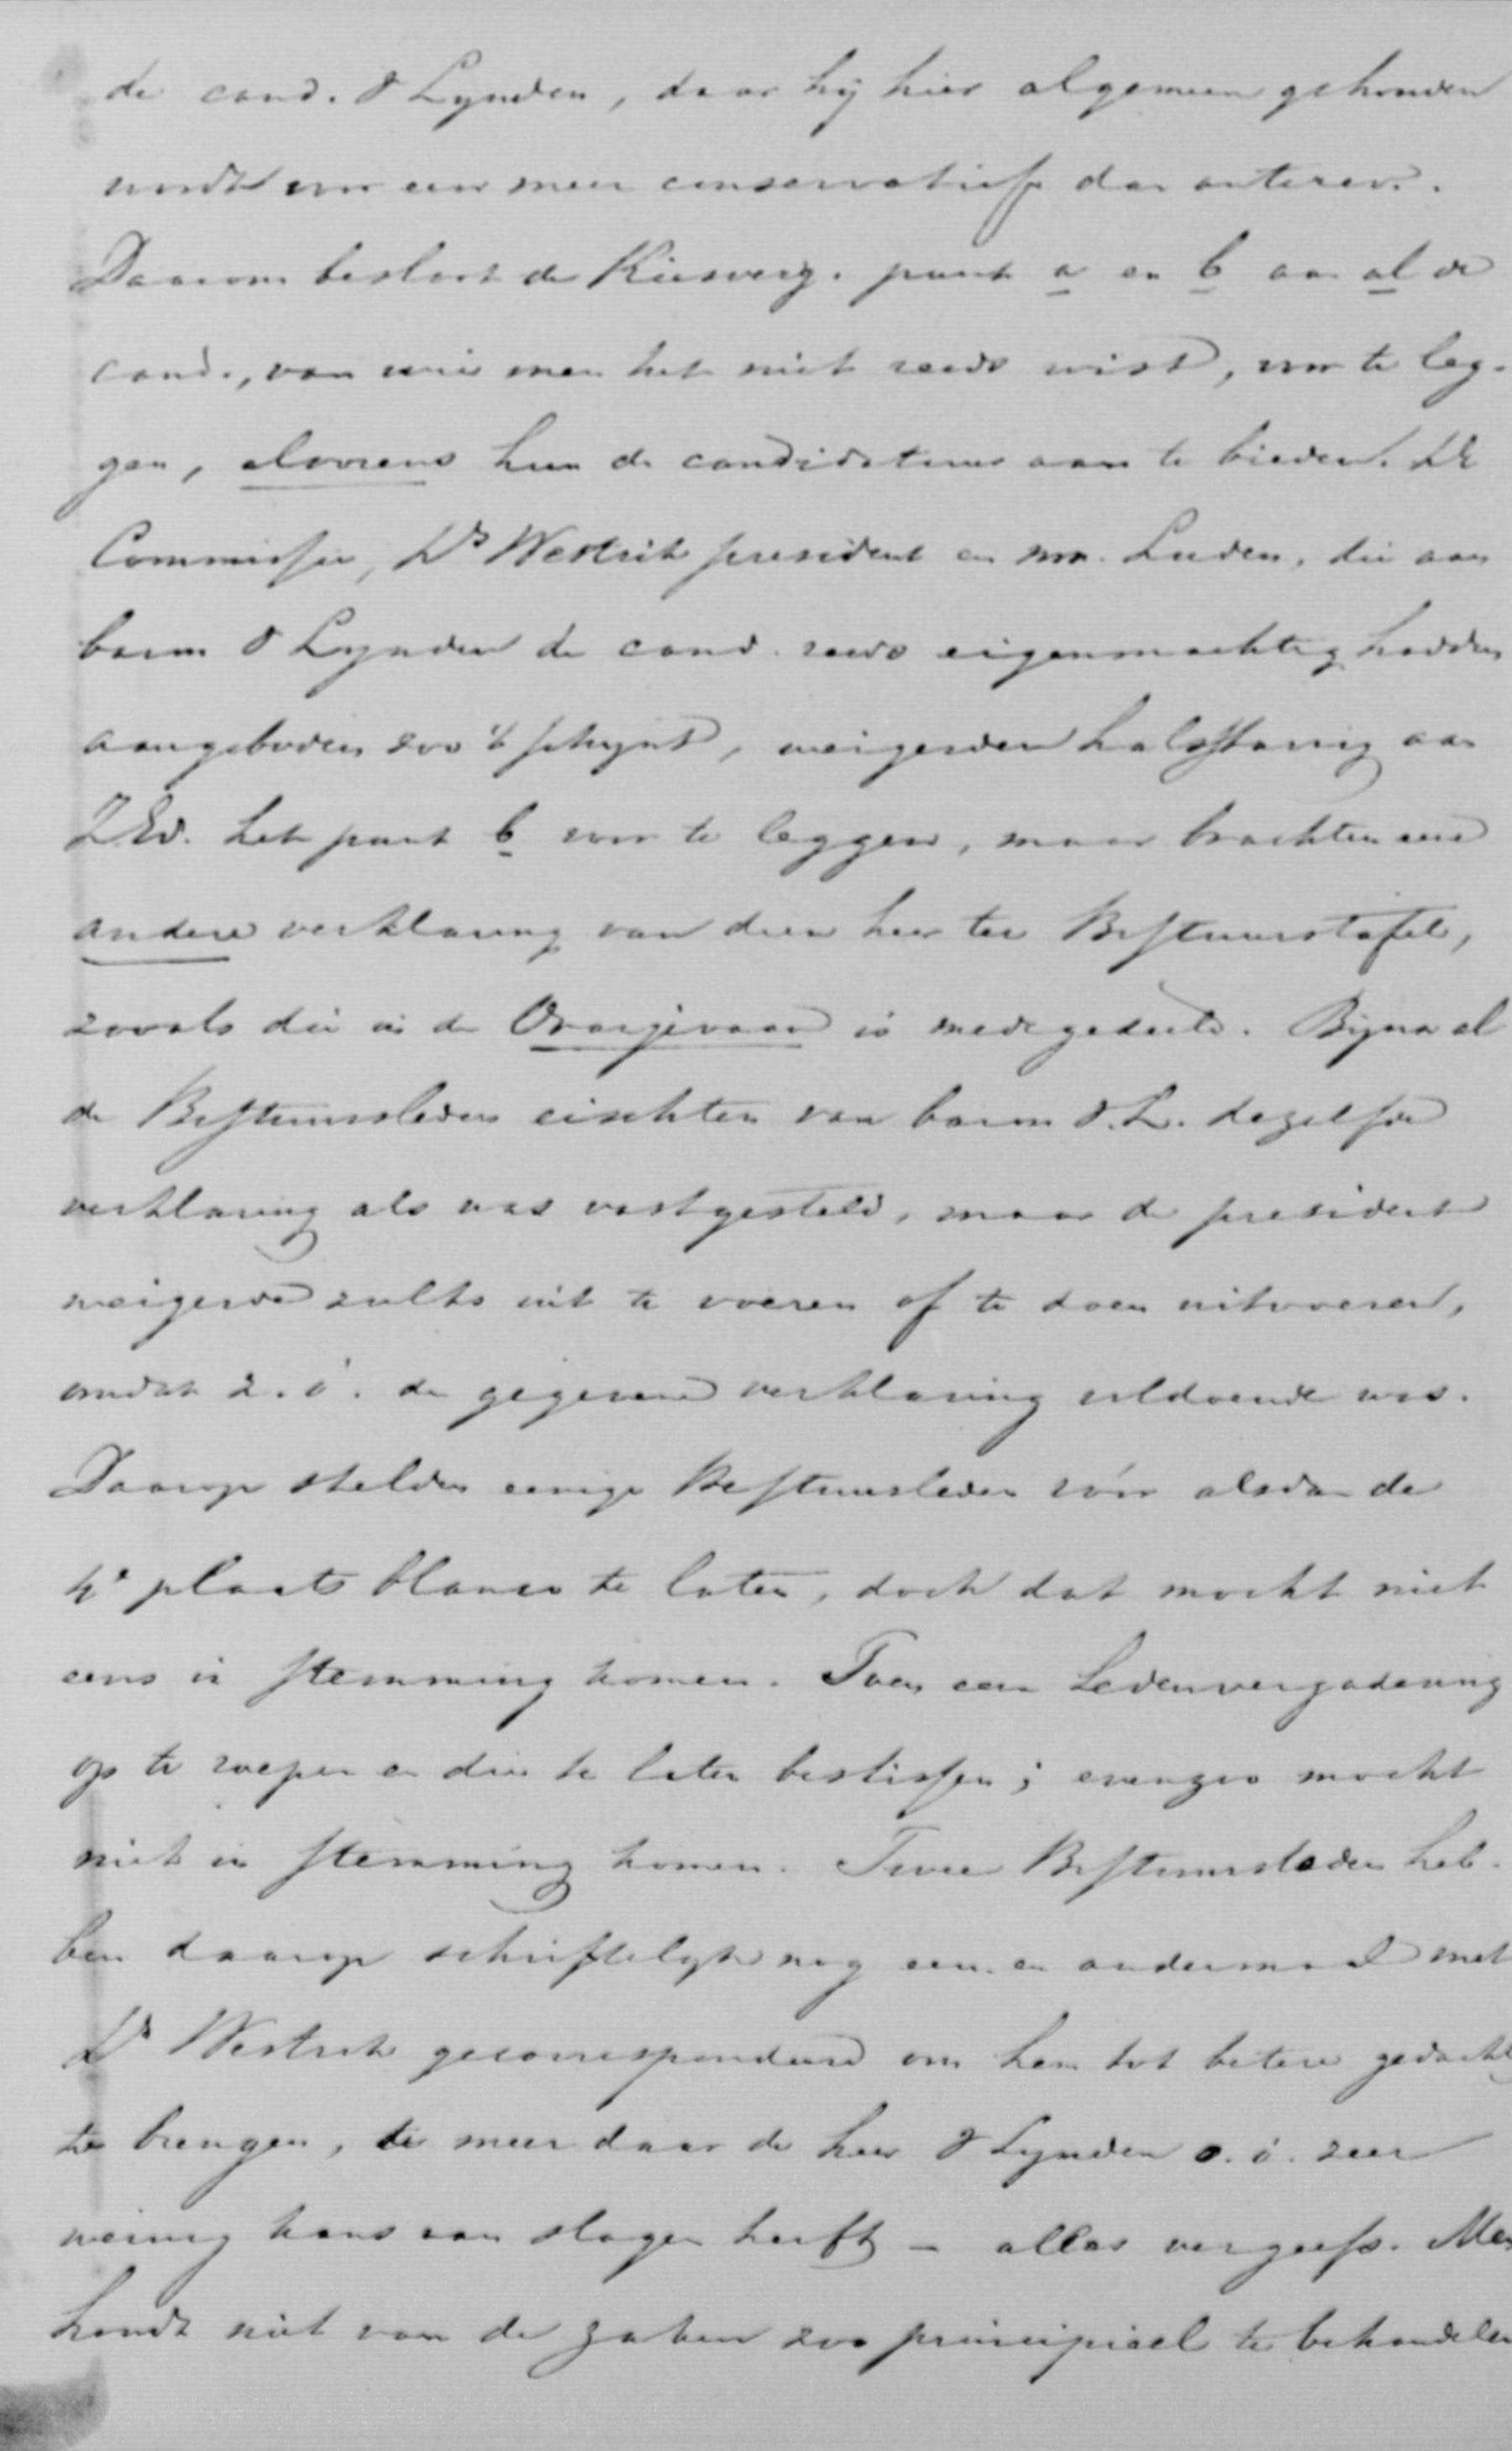 de cand. v Lynden, daar hij hier algemeen gehouden
wordt voor een meer conservatief dan antirev.
Daarom besloot de Kiesverg. punt a en b aan al de
cand., van wie men het niet reeds wist, voor te leg-
gen, alvorens hun de candidatuur aan te bieden. De
Commissie, Ds Westrik president en mr. Luden, die aan
baron v Lynden de cand. reeds eigenmachtig hadden
aangeboden zoo 't schijnt, weigerden halsstarrig aan
ZEd. het punt b voor te leggen, maar brachten eene
andere verklaring van dien heer ter Bestuurstafel,
zooals die in de Oranjevaan is medegedeeld. Bijna al
de Bestuursleden eischten van baron v. L. dezelfde
verklaring als was vastgesteld, maar de president
weigerde zulks uit te voeren of te doen uitvoeren,
omdat z. i. de gegevene verklaring voldoende was.
Daarop stelden eenige Bestuursleden vóór alsdan de
4e plaats blanco te laten, doch dat mocht niet
eens in stemming komen. Toen een Ledenvergadering
op te roepen en die te laten beslissen; evenzoo mocht
niet in stemming komen. Twee Bestuursleden heb-
ben daarop schriftelijk nog een en andermaal met
Ds Westrik gecorrespondeerd om hem tot betere gedachten
te brengen, te meer daar de heer v Lynden o. i. zeer
weinig kans van slagen heeft – alles vergeefs. Men
houdt niet van de zaken zoo principieel te behandelen